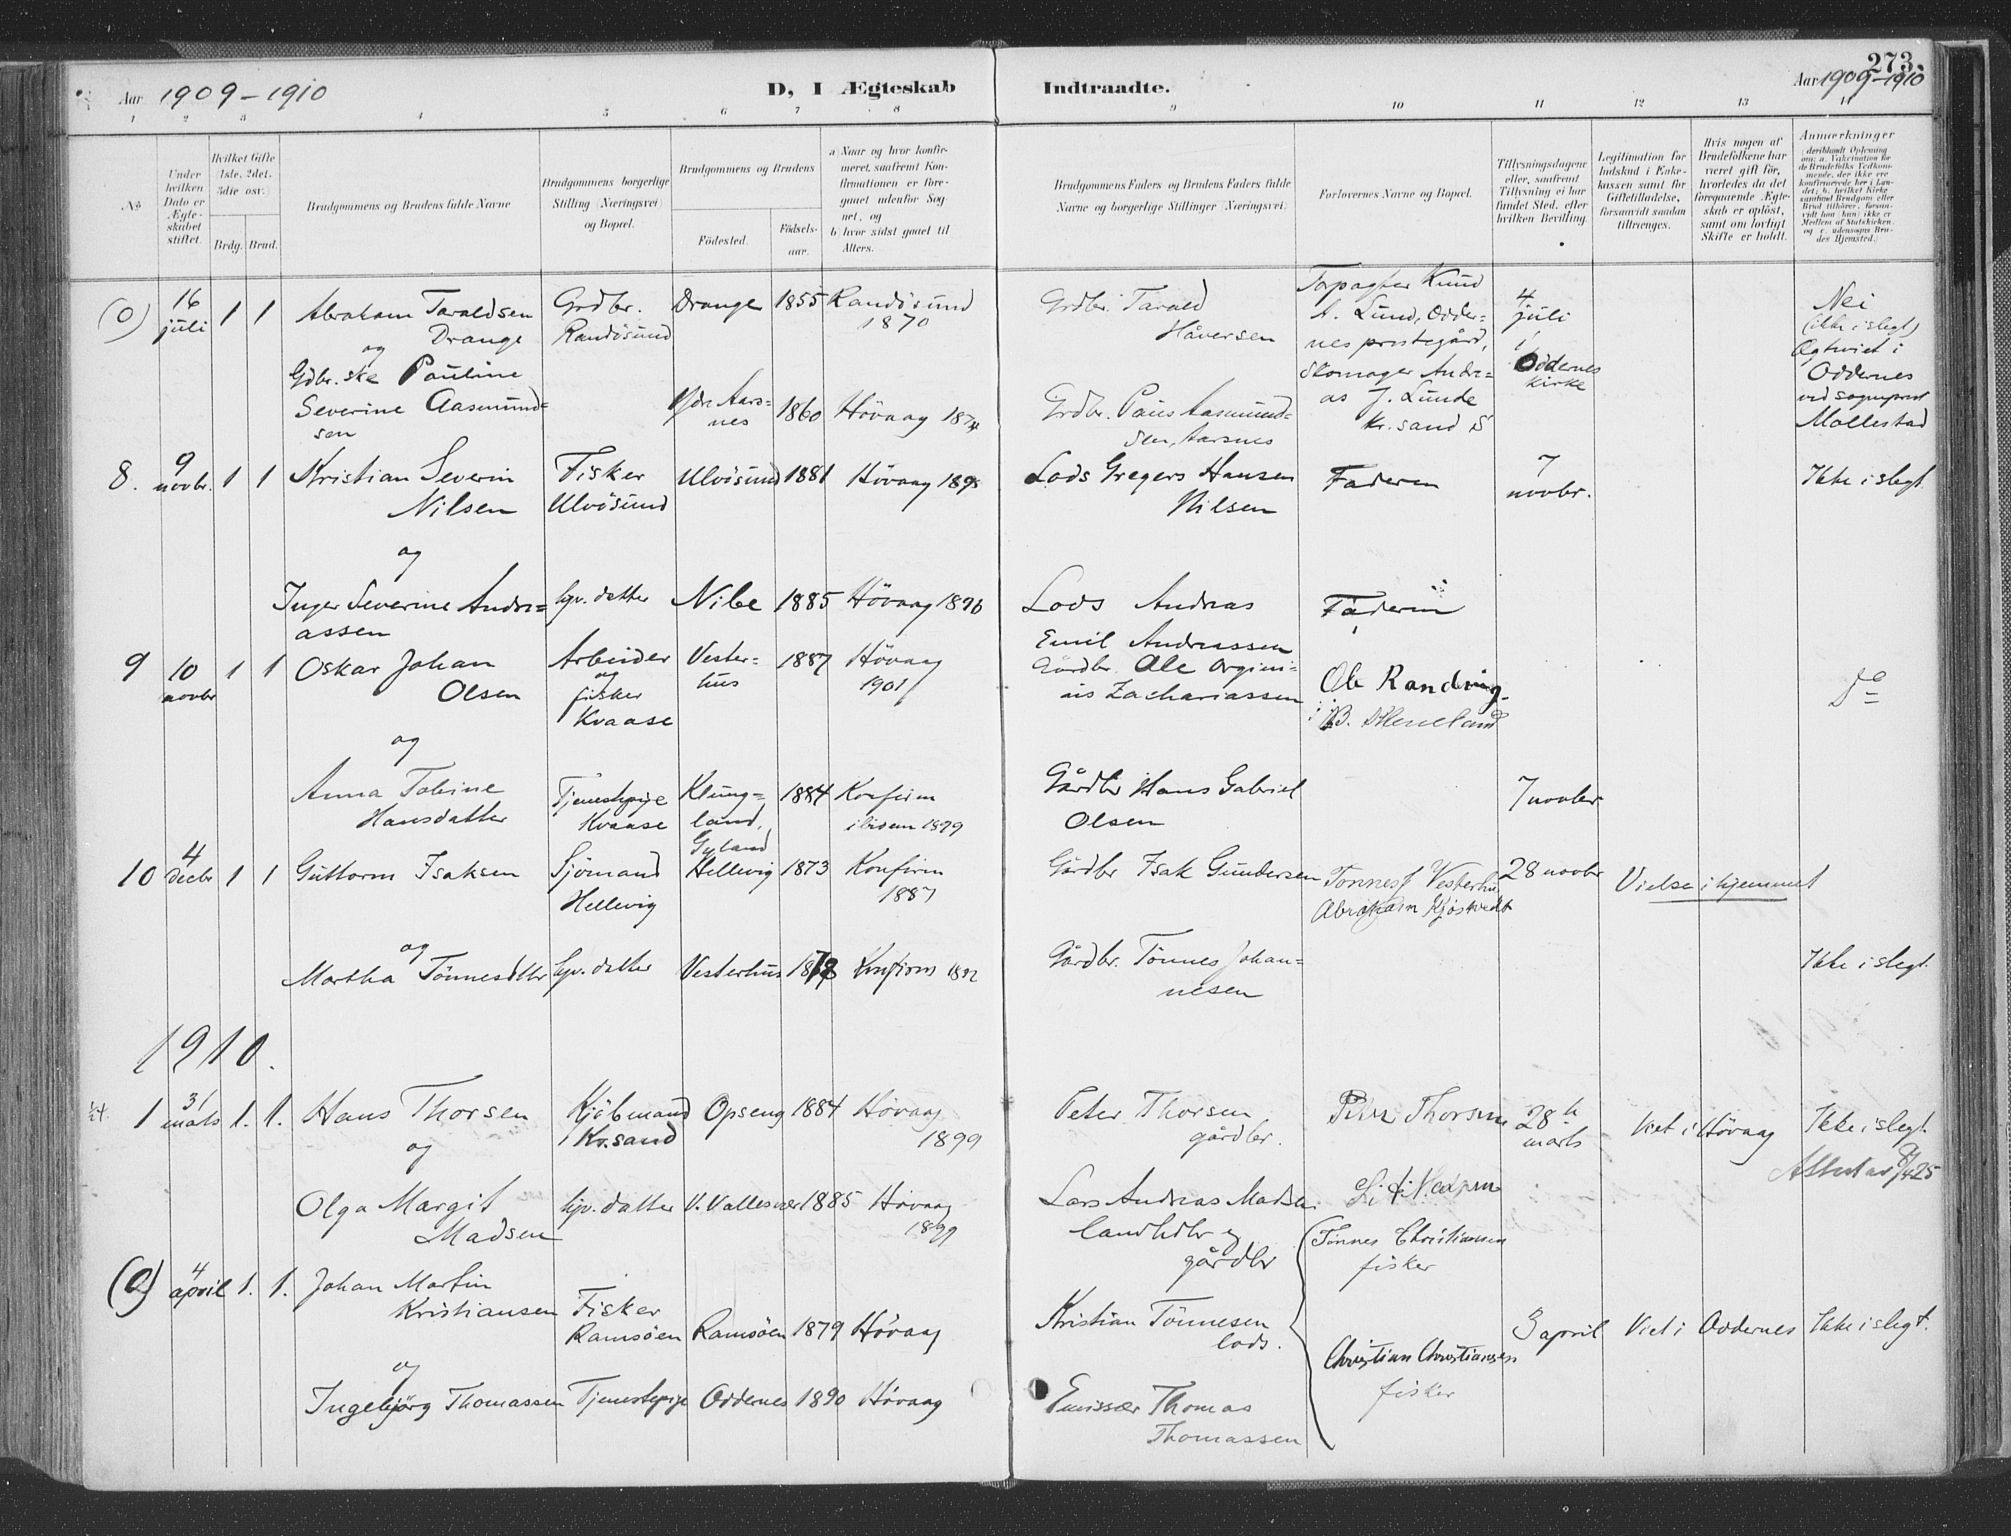 273.
Aar 1909-1910
D, I Ægteskab Indtraadte.
Aar 1909-1910
1 2 3 4 5 6 7 8 9 10 11 12 13 14
No
Under hvilken Dato er Ægteskabet stiftet.
Hvilket Gifte (1ste, 2det, 3die osv.)
Brdg. Brud.
Brudgommens og Brudens fulde Navne
Brudgommens borgerlige Stilling (Næringsvei) og Bopæl.
Brudgommens og Brudens
Fødested.
Fødselsaar.
a) Naar og hvor konfirmeret, saafremt Konfirmationen er foregaaet udenfor Sognet, og
b) hvor sidst gaaet til Alters.
Brudgommens Faders og Brudens Faders fulde Navne og borgerlige Stillinger (Næringsvei)
Forlovernes Navne og Bopæl.
Tillysningsdagene eller, saafremt Tillysning ei har fundet Sted, efter hvilken Bevilling.
Legitimation for Indskud i Enkekassen samt for Giftetilladelse, forsaavidt saadan tiltrænges.
Hvis nogen af Brudefolkene har været gift før, hvorledes da det foregaaende Ægteskab er opløst, samt om lovligt Skifte er holdt.
Anmærkninger
(0) 16 juli 1 1 Abraham Taraldsen Drange
Grdbr. Randösund Drange 1855 Randösund 1870
Grdbr. Tarald Håversen
A. Lund, Oddernes prestegård,
4 juli
Oddernes kirke
Nei (ikke i slegt)
Ægtviet i Oddernes ved sogneprest Mollestad
og
Gdbr. ske Pauline Severine Aasmundsen
Ydr. Aarsnes 1860 Hövaag 1874
Grdbr. Paus Aasmundsen, Aarsnes
Skomager Andreas J. Lunde Kr. sand S
8. 9 novbr. 1 1 Kristian Severin Nilsen
Fisker Ulvösund Ulvösund 1881 Hövaag 1895
Lods Gregers Hansen Nilsen
Faderen
7 novbr.
Ikke i slegt
og
Inger Severine Andreassen
hjv. datter Nibe 1885 Hövaag 1896
Lods Andreas Emil Andreassen
Faderen
9 10 novbr 1 1 Oskar Johan Olsen
Arbeider og fisker Kvaase Vesterhus 1887 Hövaag 1901
Gårdbr. Ole Zachariassen
Ole Randvig
do
og
Anna Tobine Hansdatter
Tjenestepige Kvaase Klungland, Gyland 1884 Konfirm ibidem 1899
Gårdbr Hans Gabriel Olsen
7 novbr
10 4 decbr 1 1 Guttorm Isaksen
Sjömand Hellevig Hellevig 1873 Konfirm 1887
Gårdbr Isak Gundersen
Tønnes J Vesterhus
Abraham Kjøstvedt
28 novbr
Vielse i hjemmet
og
Martha Tönnesdttr
hjv. datter Vesterhus 1878 Konfirm 1892
Gårdbr. Tönnes Johannesen
Ikke i slegt
1910.
1 31 mats 1. 1. Hans Thorsen
Kjöbmand Kr.sand Opseng 1884 Hövaag 1899
Peter Thorsen gårdbr.
Peter Thorsen
28 marts
Viet i Hövaag
Ikke i slegt
Attest av 8/4 25
og
Olga Margit Madsen
hjv. datter V. Vallesvær 1885 Hövaag 1899
Lars Andreas Madsen
landhdlr og gårdbr
(0) 4 april 1. 1. Johan Martin Kristiansen
Fisker Ramsöen Ramsöen 1879 Hövaag
Kristian Tönnesen lods.
Tönnes Christiansen fisker
3 april
Viet i Oddernes
Ikke i slegt.
og
Ingebjörg Thomassen
Tjenestepige Oddernes 1890 Hövaag
Emissær Thomas Thomassen
Christian Christiansen fisker